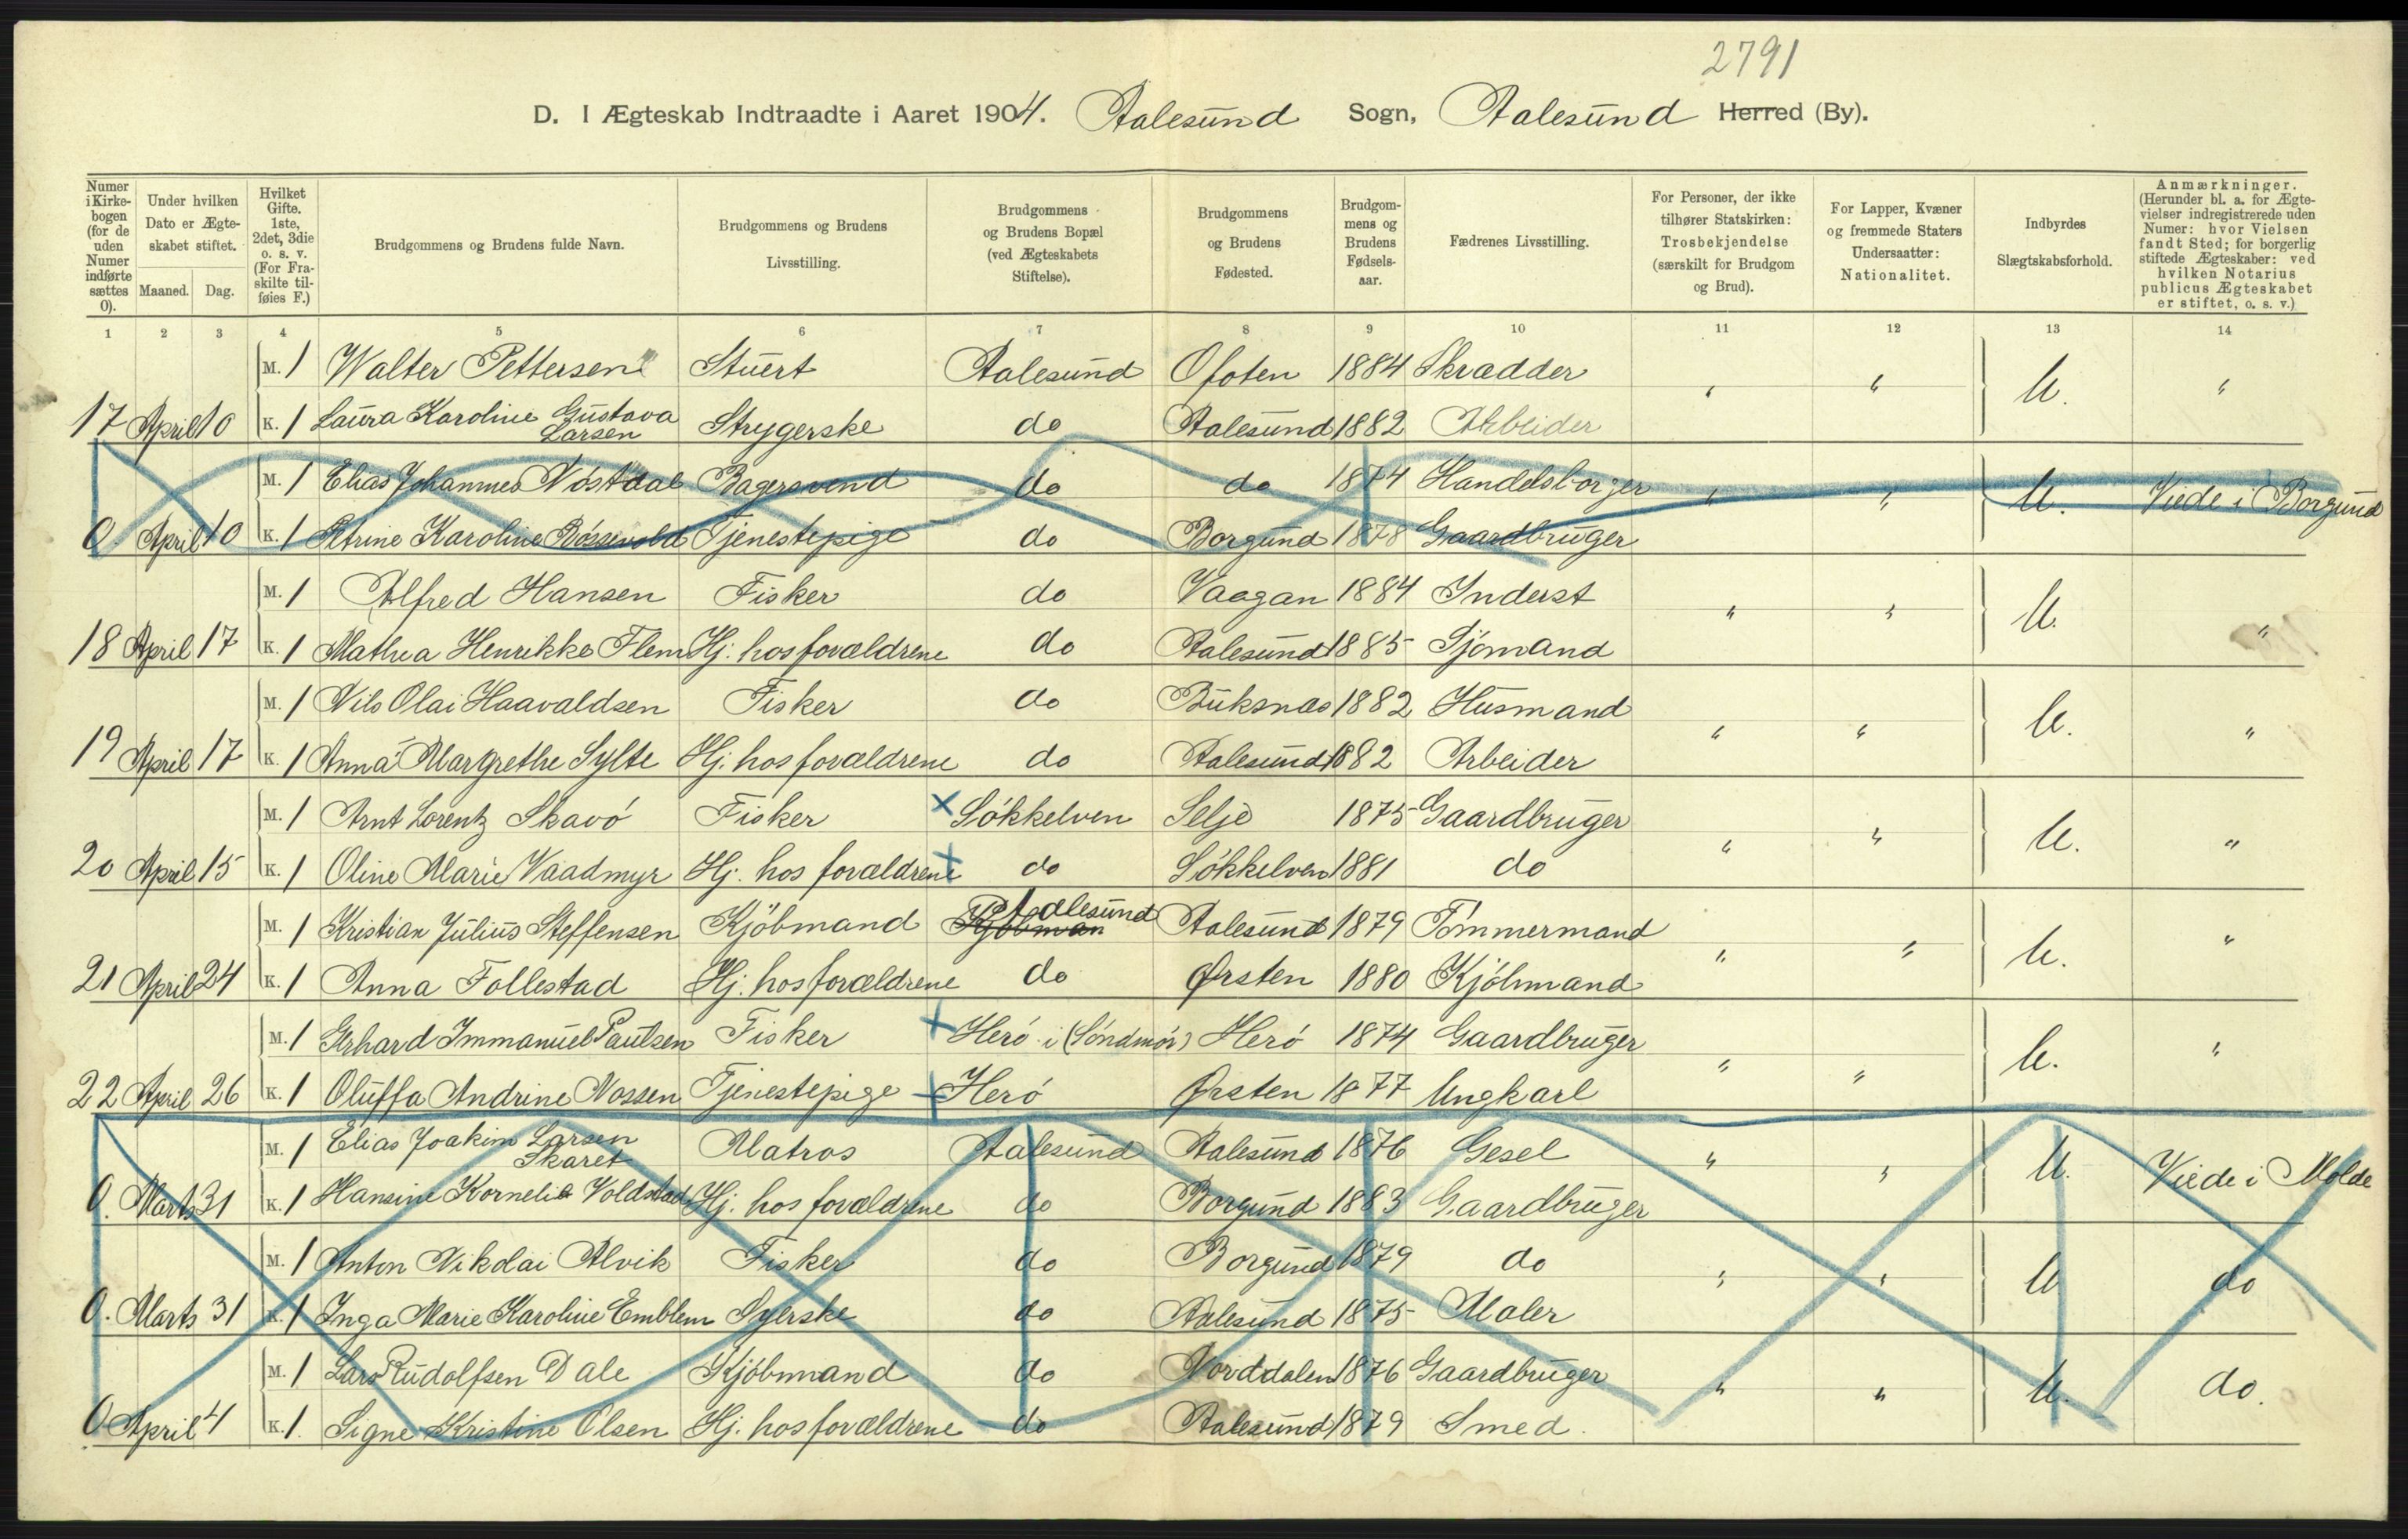 2791
D. I Ægteskab Indtraadte i Aaret 1904. Aalesund Sogn, Aalesund Herred (By).
Numer i Kirkebogen (for de uden Numer indførte sættes 0).
Under hvilken Dato er Ægteskabet stiftet. Maaned. Dag.
Hvilket Gifte. 1ste, 2det, 3die o. s. v. (For Fraskilte tilføies F.)
Brudgommens og Brudens fulde Navn.
Brudgommens og Brudens Livsstilling.
Brudgommens og Brudens Bopæl (ved Ægteskabets Stiftelse).
Brudgommens og Brudens Fødested.
Brudgommens og Brudens Fødselsaar.
Fædrenes Livsstilling.
For Personer, der ikke tilhører Statskirken: Trosbekjendelse (særskilt for Brudgom og Brud).
For Lapper, Kvæner og fremmede Staters Undersaatter: Nationalitet.
Indbyrdes Slægtskabsforhold.
Anmærkninger. (Herunder bl. a. for Ægtevielser indregistrerede uden Numer: hvor Vielsen fandt Sted; for borgerlig stiftede Ægteskaber: ved hvilken Notarius publicus Ægteskabet er stiftet, o. s. v.)
1 2 3 4 5 6 7 8 9 10 11 12 13 14
M. 1 Walter Pettersen Stuert Aalesund Ofoten 1884 Skrædder " " U. "
17 April 10 K. 1 Laura Karoline Gustava Larsen Strygerske do Aalesund 1882 Arbeider
M. 1 Elias Johannes Nøstdal Bagersvend do do 1874 Handelsborger " " U. Viede i Borgund
0 April 10 K. 1 Petrine Karoline Bøssevold Tjenestepige do Borgund 1878 Gaardbruger
M. 1 Alfred Hansen Fisker do Vaagan 1884 Inderst " " U. "
18 April 17 K. 1 Mathea Henrikke Flem Hj. hos forældrene do Aalesund 1885 Sjømand
M. 1 Nils Olai Haavaldsen Fisker do Buksnæs 1882 Husmand " " U. "
19 April 17 K. 1 Anna Margrethe Sylte Hj. hos forældrene do Aalesund 1882 Arbeider
M. 1 Arnt Lorentz Skavø Fisker × Søkkelven Selje 1875 Gaardbruger " " U. "
20 April 15 K. 1 Oline Marie Vaadmyr Hj. hos forældrene + do Søkkelven 1881 do
M. 1 Kristian Julius Steffensen Kjøbmand Kjøbman Aalesund Aalesund 1879 Tømmermand " " U. "
21 April 24 K. 1 Anna Follestad Hj. hos forældrene do Ørsten 1880 Kjøbmand
M. 1 Gerhard Immanuel Paulsen Fisker + Herø i (Søndmør) Herø 1874 Gaardbruger " " U. "
22 April 26 K. 1 Oluffa Andrine Nossen Tjenestepige + Herø Ørsten 1877 Ungkarl
M. 1 Elias Joakim Larsen Skaret Matros Aalesund Aalesund 1876 Gesel " " U. Viede i Molde
0. Marts 31 K. 1 Hansine Kornelia Voldstad Hj. hos forældrene do Borgund 1883 Gaardbruger
M. 1 Anton Nikolai Alvik Fisker do Borgund 1879 do " " U do
0. Marts 31 K. 1 Inga Marie Karoline Emblem Syerske do Aalesund 1875 Maler
M. 1 Lars Rudolfsen Dale Kjøbmand do Norddalen 1876 Gaardbruger " " U. do.
0 April 4 K. 1. Signe Kristine Olsen Hj. hos forældrene do Aalesund 1879 Smed.